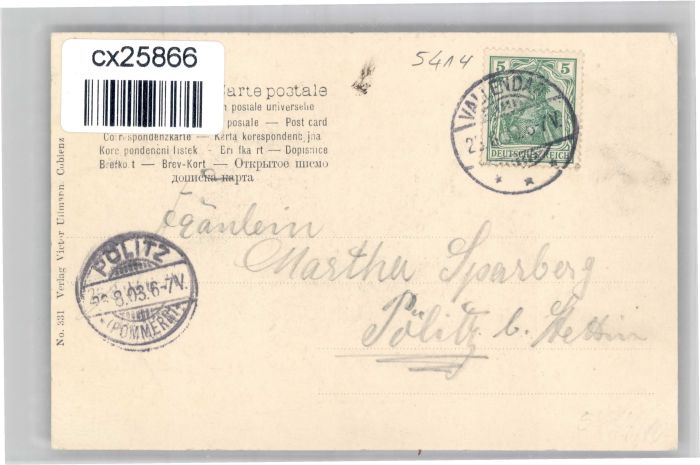 cx25866
5414
Carte postale
postale universelle
postale — Post card
Correspondenzkarte — Karta korespondencyjna
Kore pondenční lístek · Dopisnice
Brefko t — Brev-Kort — Открытое писмо
дописна карта
5 5
DEUTSCHES REICH
VALLENDAR
Fräulein
Martha Sparberg
Pölitz b. Stettin
PÖLITZ
8.03.6-7V.
(POMMERN)
No. 331 Verlag Victor Ullmann, Coblenz